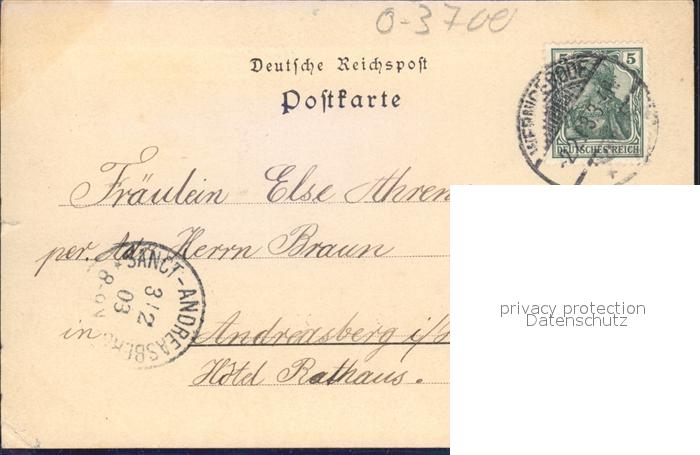 0-3700
Deutsche Reichspost
Postkarte
5 5
DEUTSCHES REICH
WERNIGERODE
Fräulein Else Ahren
per. Adr. Herrn Braun
SANCT-ANDREASBERG
3 12
03
8-9V
in Andreasberg i/H
Hôtel Rathaus.
privacy protection
Datenschutz